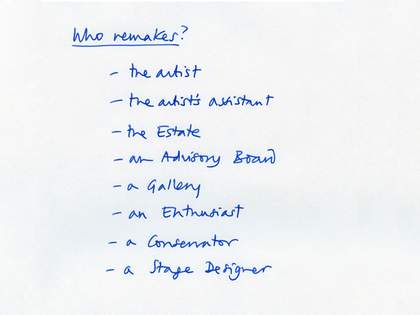 Who remakes?
- the artist
- the artist's assistant
- the Estate
- an Advisory Board
- a Gallery
- an Enthusiast
- a Conservator
- a Stage Designer